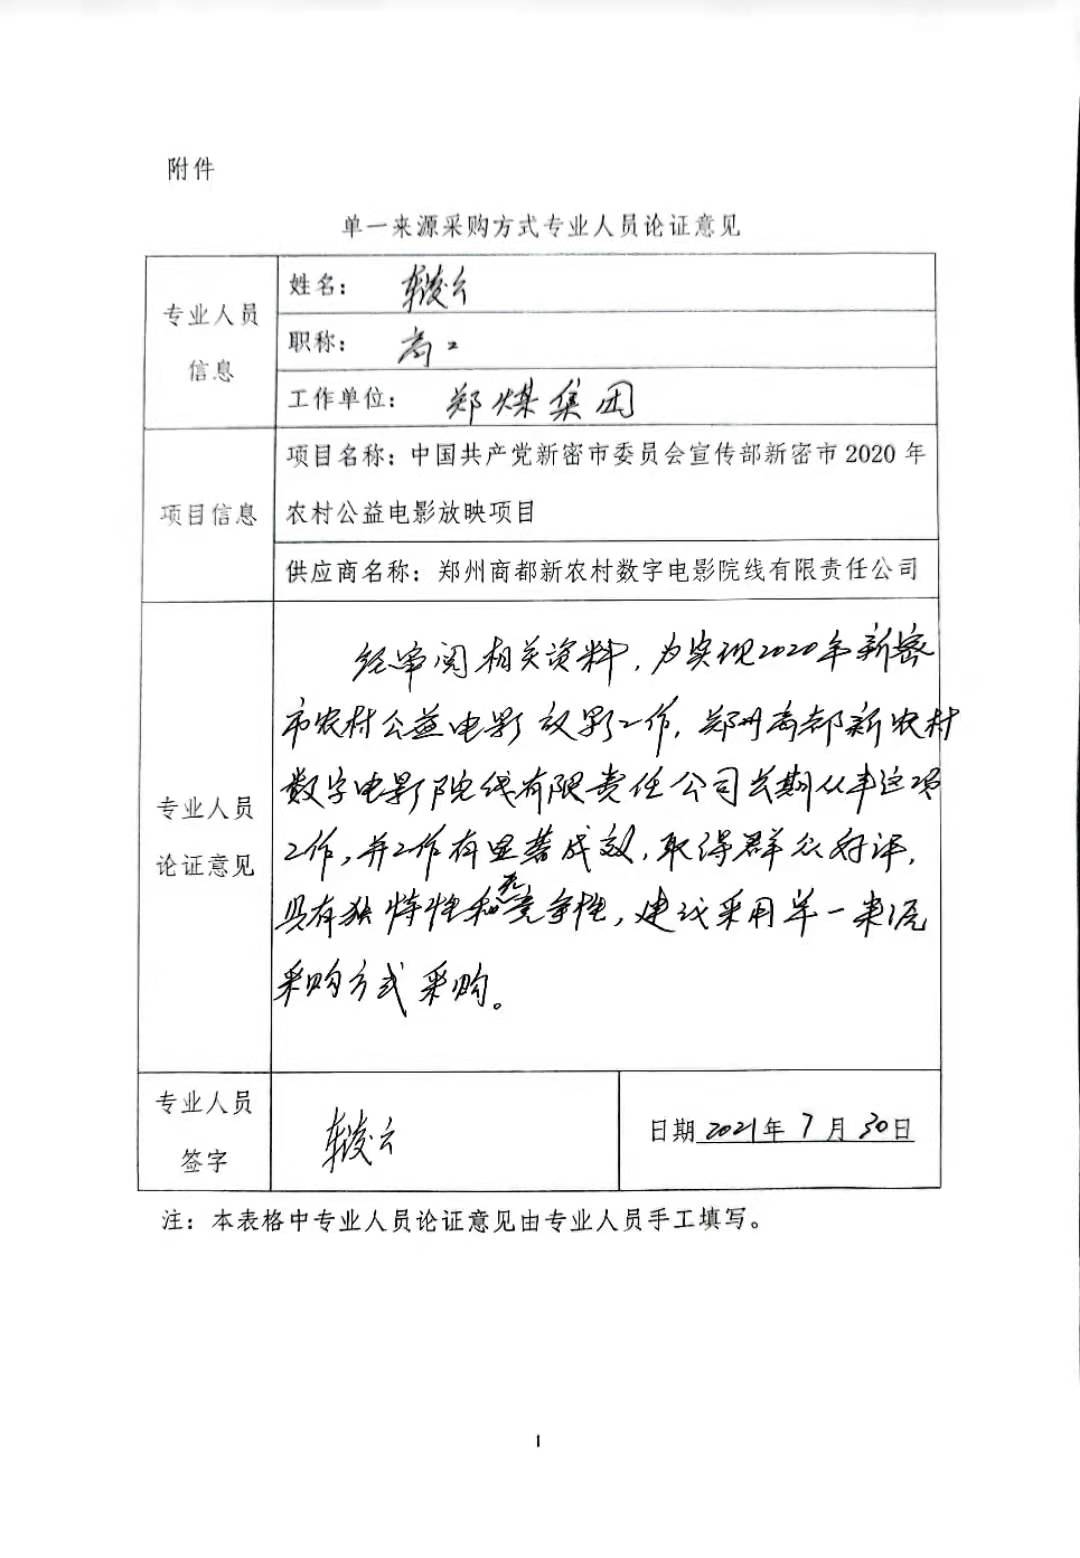 附件
单一来源采购方式专业人员论证意见
专业人员
信息
姓名：
职称：高工
工作单位：郑煤集团
项目信息
项目名称：中国共产党新密市委员会宣传部新密市2020年
农村公益电影放映项目
供应商名称：郑州商都新农村数字电影院线有限责任公司
专业人员
论证意见
经审阅相关资料，为实现2020年新密
市农村公益电影放影工作，郑州商都新农村
数字电影院线有限责任公司长期从事这项
工作，并工作有显著成效，取得群众好评，
具有独特性和无竞争性，建议采用单一来源
采购方式采购。
专业人员
签字
日期2021年7月30日
注：本表格中专业人员论证意见由专业人员手工填写。
1